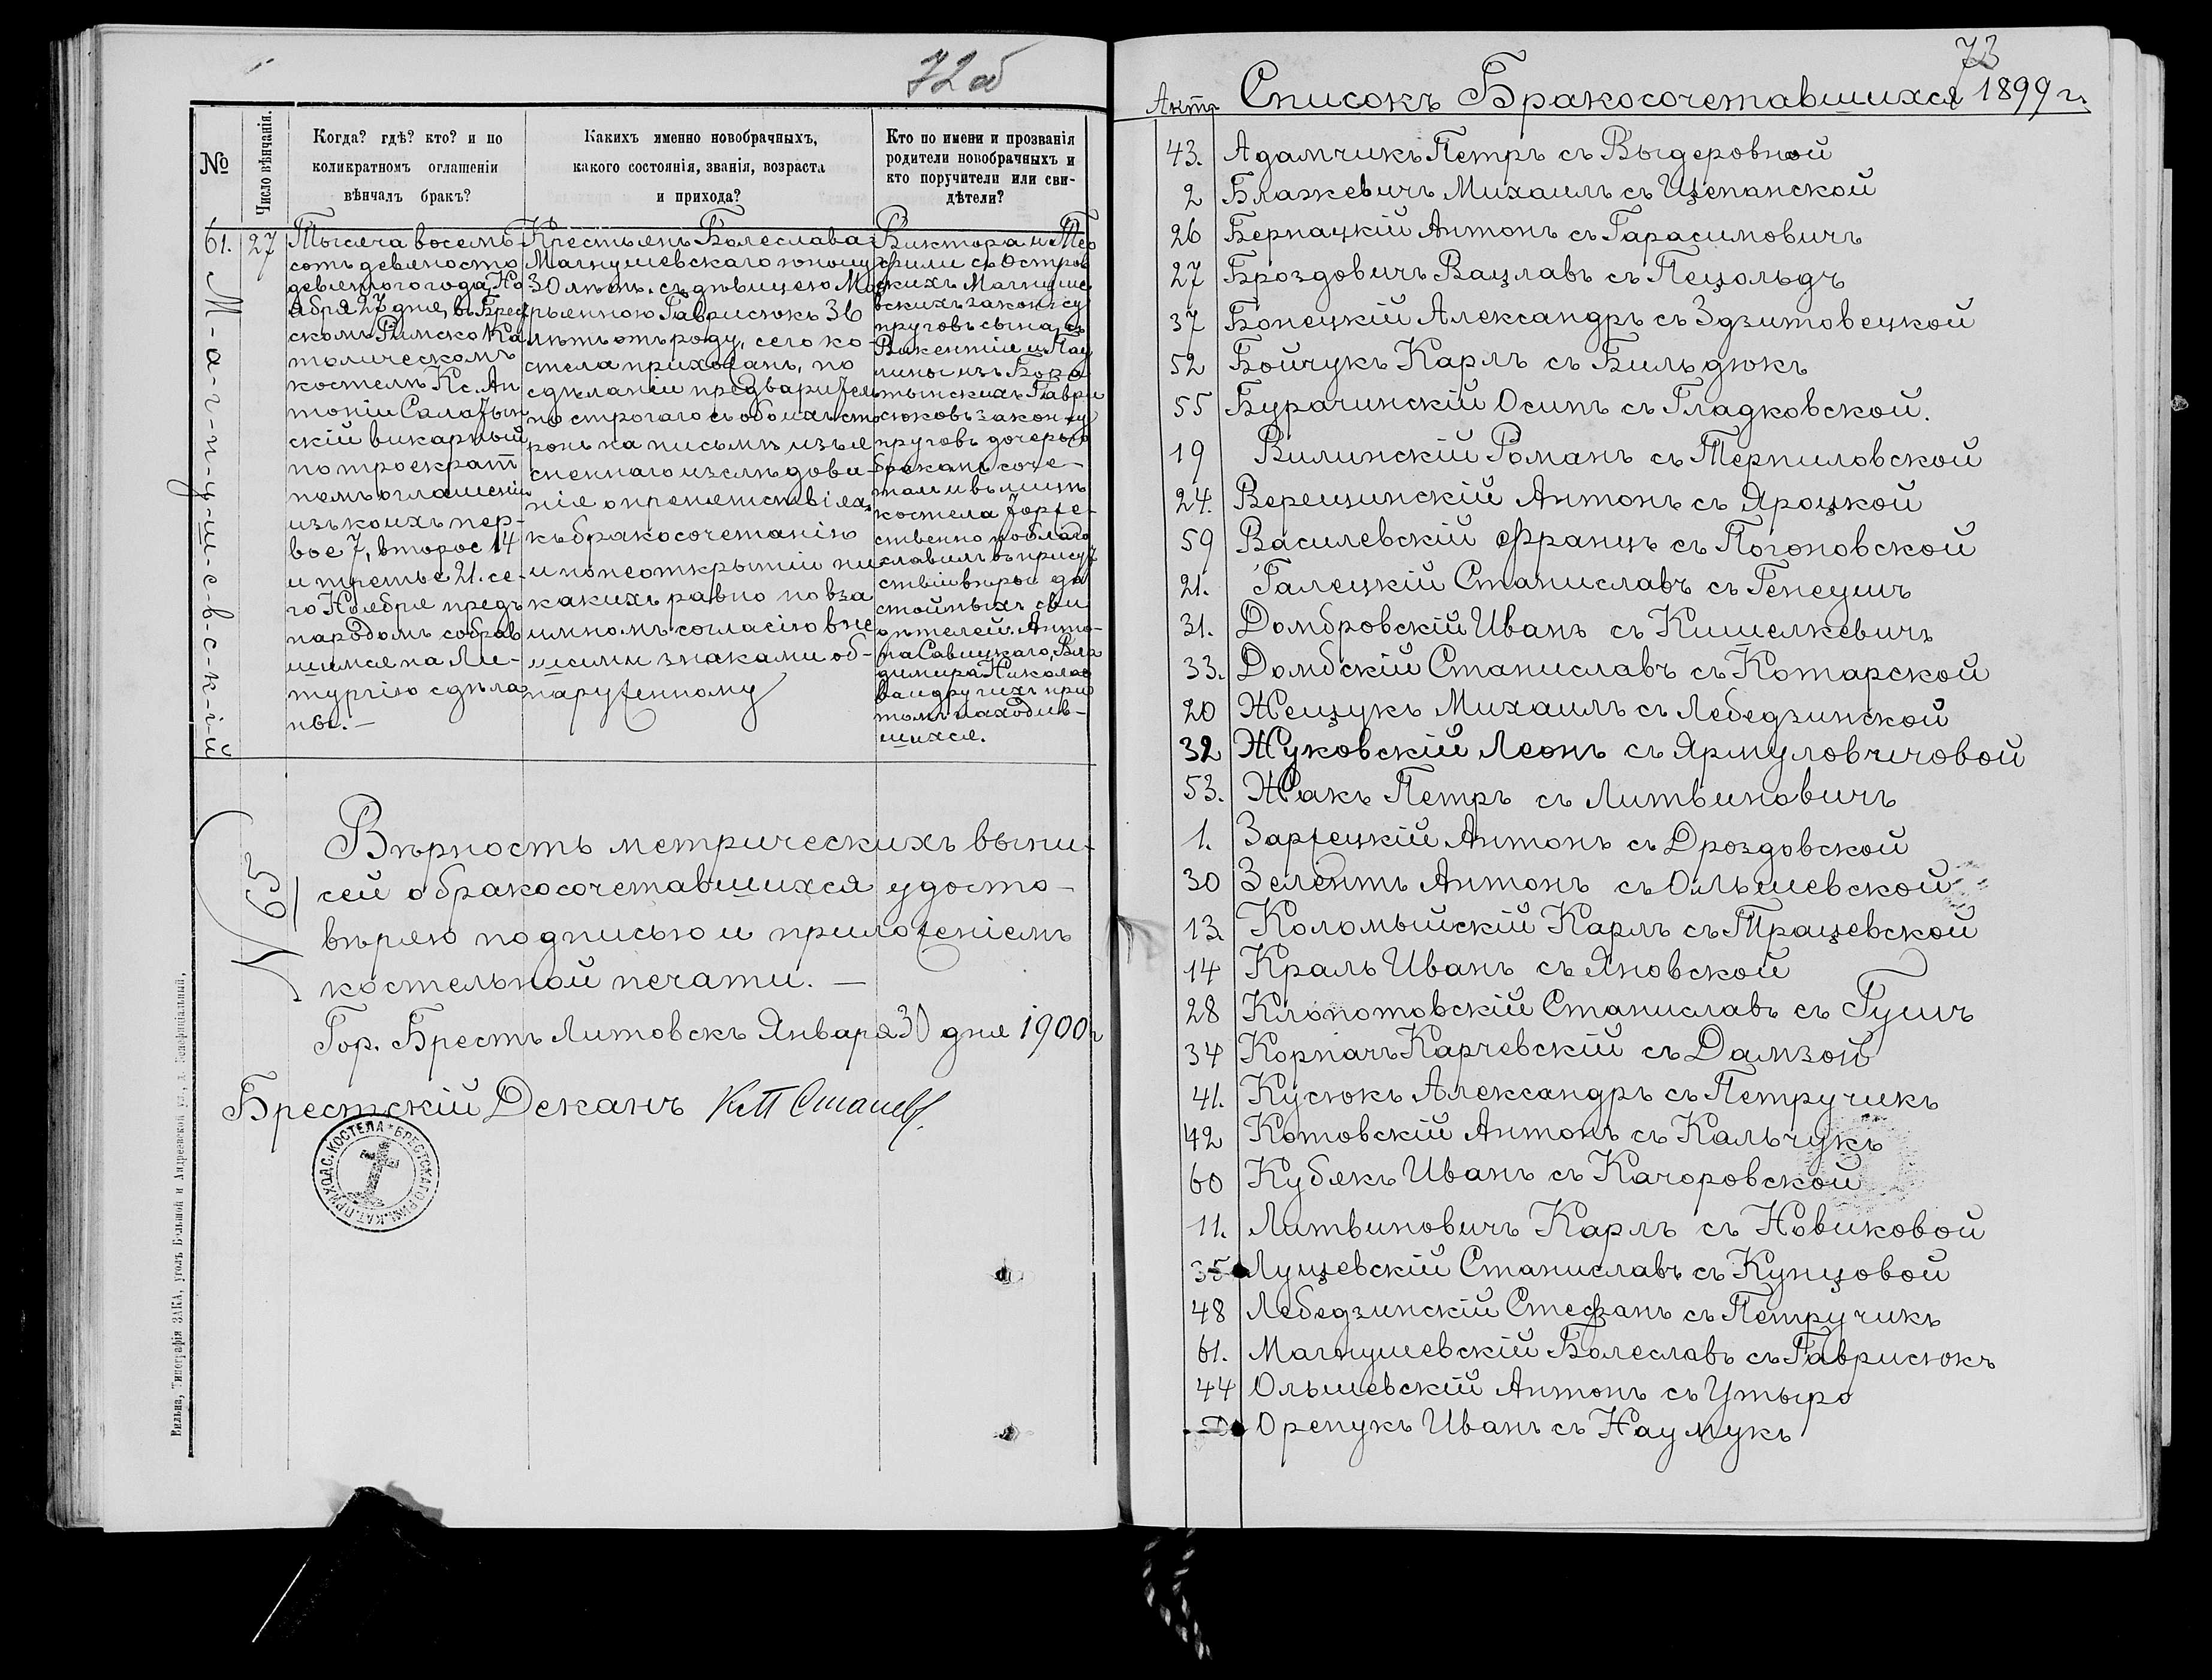 72 об
№
Число вѣнчанія.
Когда? гдѣ? кто? и по
коликратномъ оглашеніи
вѣнчалъ бракъ?
Какихъ именно новобрачныхъ,
какого состоянія, званія, возраста
и прихода?
Кто по имени и прозванія
родители новобрачныхъ и
кто поручители или сви-
дѣтели?
61.
М-а-г-н-у-ш-е-в-с-к-і-й
27
Тысяча восемь
сотъ девяносто
девятого года, Но
ября 27 дня, въ Брест
скомъ Римско Ка
толическомъ
костелѣ Кс. Ан
тоній Салатын
скій викарный
по троекрат
номъ оглашеніи
изъ коихъ пер-
вое 7, второе 14
и третье 21. се-
го Ноября предъ
народомъ собрав
шимся на Ли-
тургію сдѣла
ны.—
Крестьянъ Болеслава
Магнушевскаго юношу
30 лѣтъ. съ дѣвицею Ма
рьянною Гаврисюкъ 36
лѣтъ отъ роду, сего ко-
стела прихожанъ, по
сдѣланіи предваритель
но строгаго съ обоихъ сто
ронъ на письмѣ изъя
сненнаго изслѣдова-
нія о препятствіяхъ
къ бракосочетанію
и по неоткрытіи ни
какихъ равно по вза
имномъ согласію внѣ
шними знаками об-
наруженному
Виктора и Тео
филіи съ Остров
скихъ Магнуше
вскихъ закон: су
пруговъ сына, съ
Викентія и Пау
лины изъ Бора
тынскихъ Гаври
сюковъ закон: су
пруговъ дочерью
бракомъ соче-
талъ и въ лицѣ
костела торже-
ственно поблаго
славилъ въ присут
ствіи вѣры до
стойныхъ сви
дѣтелей: Анто-
на Савицкаго, Вла
димира Николае
ва и другихъ при
томъ находив-
шихся.
N 65
Вѣрность метрическихъ выпи-
сей о бракосочетавшихся удосто-
вѣряю подписью и приложеніемъ
костельной печати. —
Гор. Брестъ Литовскъ Января 30 дня 1900 г
Брестскій Деканъ
БРЕСТСКАГО РИМ. КАТ. ПРИХОДС. КОСТЕЛА
Вильна, Типографія ЗАКА, уголъ Большой и Андреевской ул., д.
73
Актъ Списокъ Бракосочетавшихся 1899 г.
43. Адамчикъ Петръ съ Выдеровной
2 Блажевичъ Михаилъ съ Щепанской
26 Бернацкій Антонъ съ Гарасимовичъ
27 Броздовичъ Вацлавъ съ Пецольдъ
37 Бонецкій Александръ съ Здзитовецкой
52 Бойчукъ Карлъ съ Бильдюкъ
55 Бурачинскій Осипъ съ Гладковской.
19 Вилинскій Романъ съ Терпиловской
24. Верещинскій Антонъ съ Яроцкой
59 Василевскій Францъ съ Погоновской
21. Галецкій Станиславъ съ Генеушъ
31. Домбровскій Иванъ съ Кишелкевичъ
33. Домбскій Станиславъ съ Котарской
20 Жещукъ Михаилъ съ Лебедзинской
32 Жуковскій Леонъ съ Ярмуловичовой
53. Жакъ Петръ съ Литвиновичъ
1. Заржецкій Антонъ съ Дроздовской
30 Зелентъ Антонъ съ Ольшевской
13. Коломыйскій Карлъ съ Трацевской
14 Краль Иванъ съ Яновской
28 Клопотовскій Станиславъ съ Гушъ
34 Корпачъ Карчевскій съ Дамзой
41. Кусюкъ Александръ съ Петручикъ
42 Котовскій Антонъ съ Кальчукъ
60 Кубякъ Иванъ съ Качоровской
11. Литвиновичъ Карлъ съ Новиковой
35 Лущевскій Станиславъ съ Купцовой
48 Лебедзинскій Стефанъ съ Петручикъ
61. Магнушевскій Болеславъ съ Гаврисюкъ
44 Ольшевскій Антонъ съ Утыро
Орепукъ Иванъ съ Наумукъ